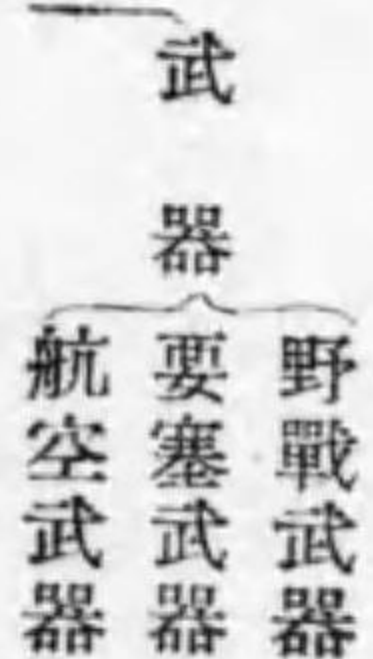 武器
野戰武器
要塞武器
航空武器